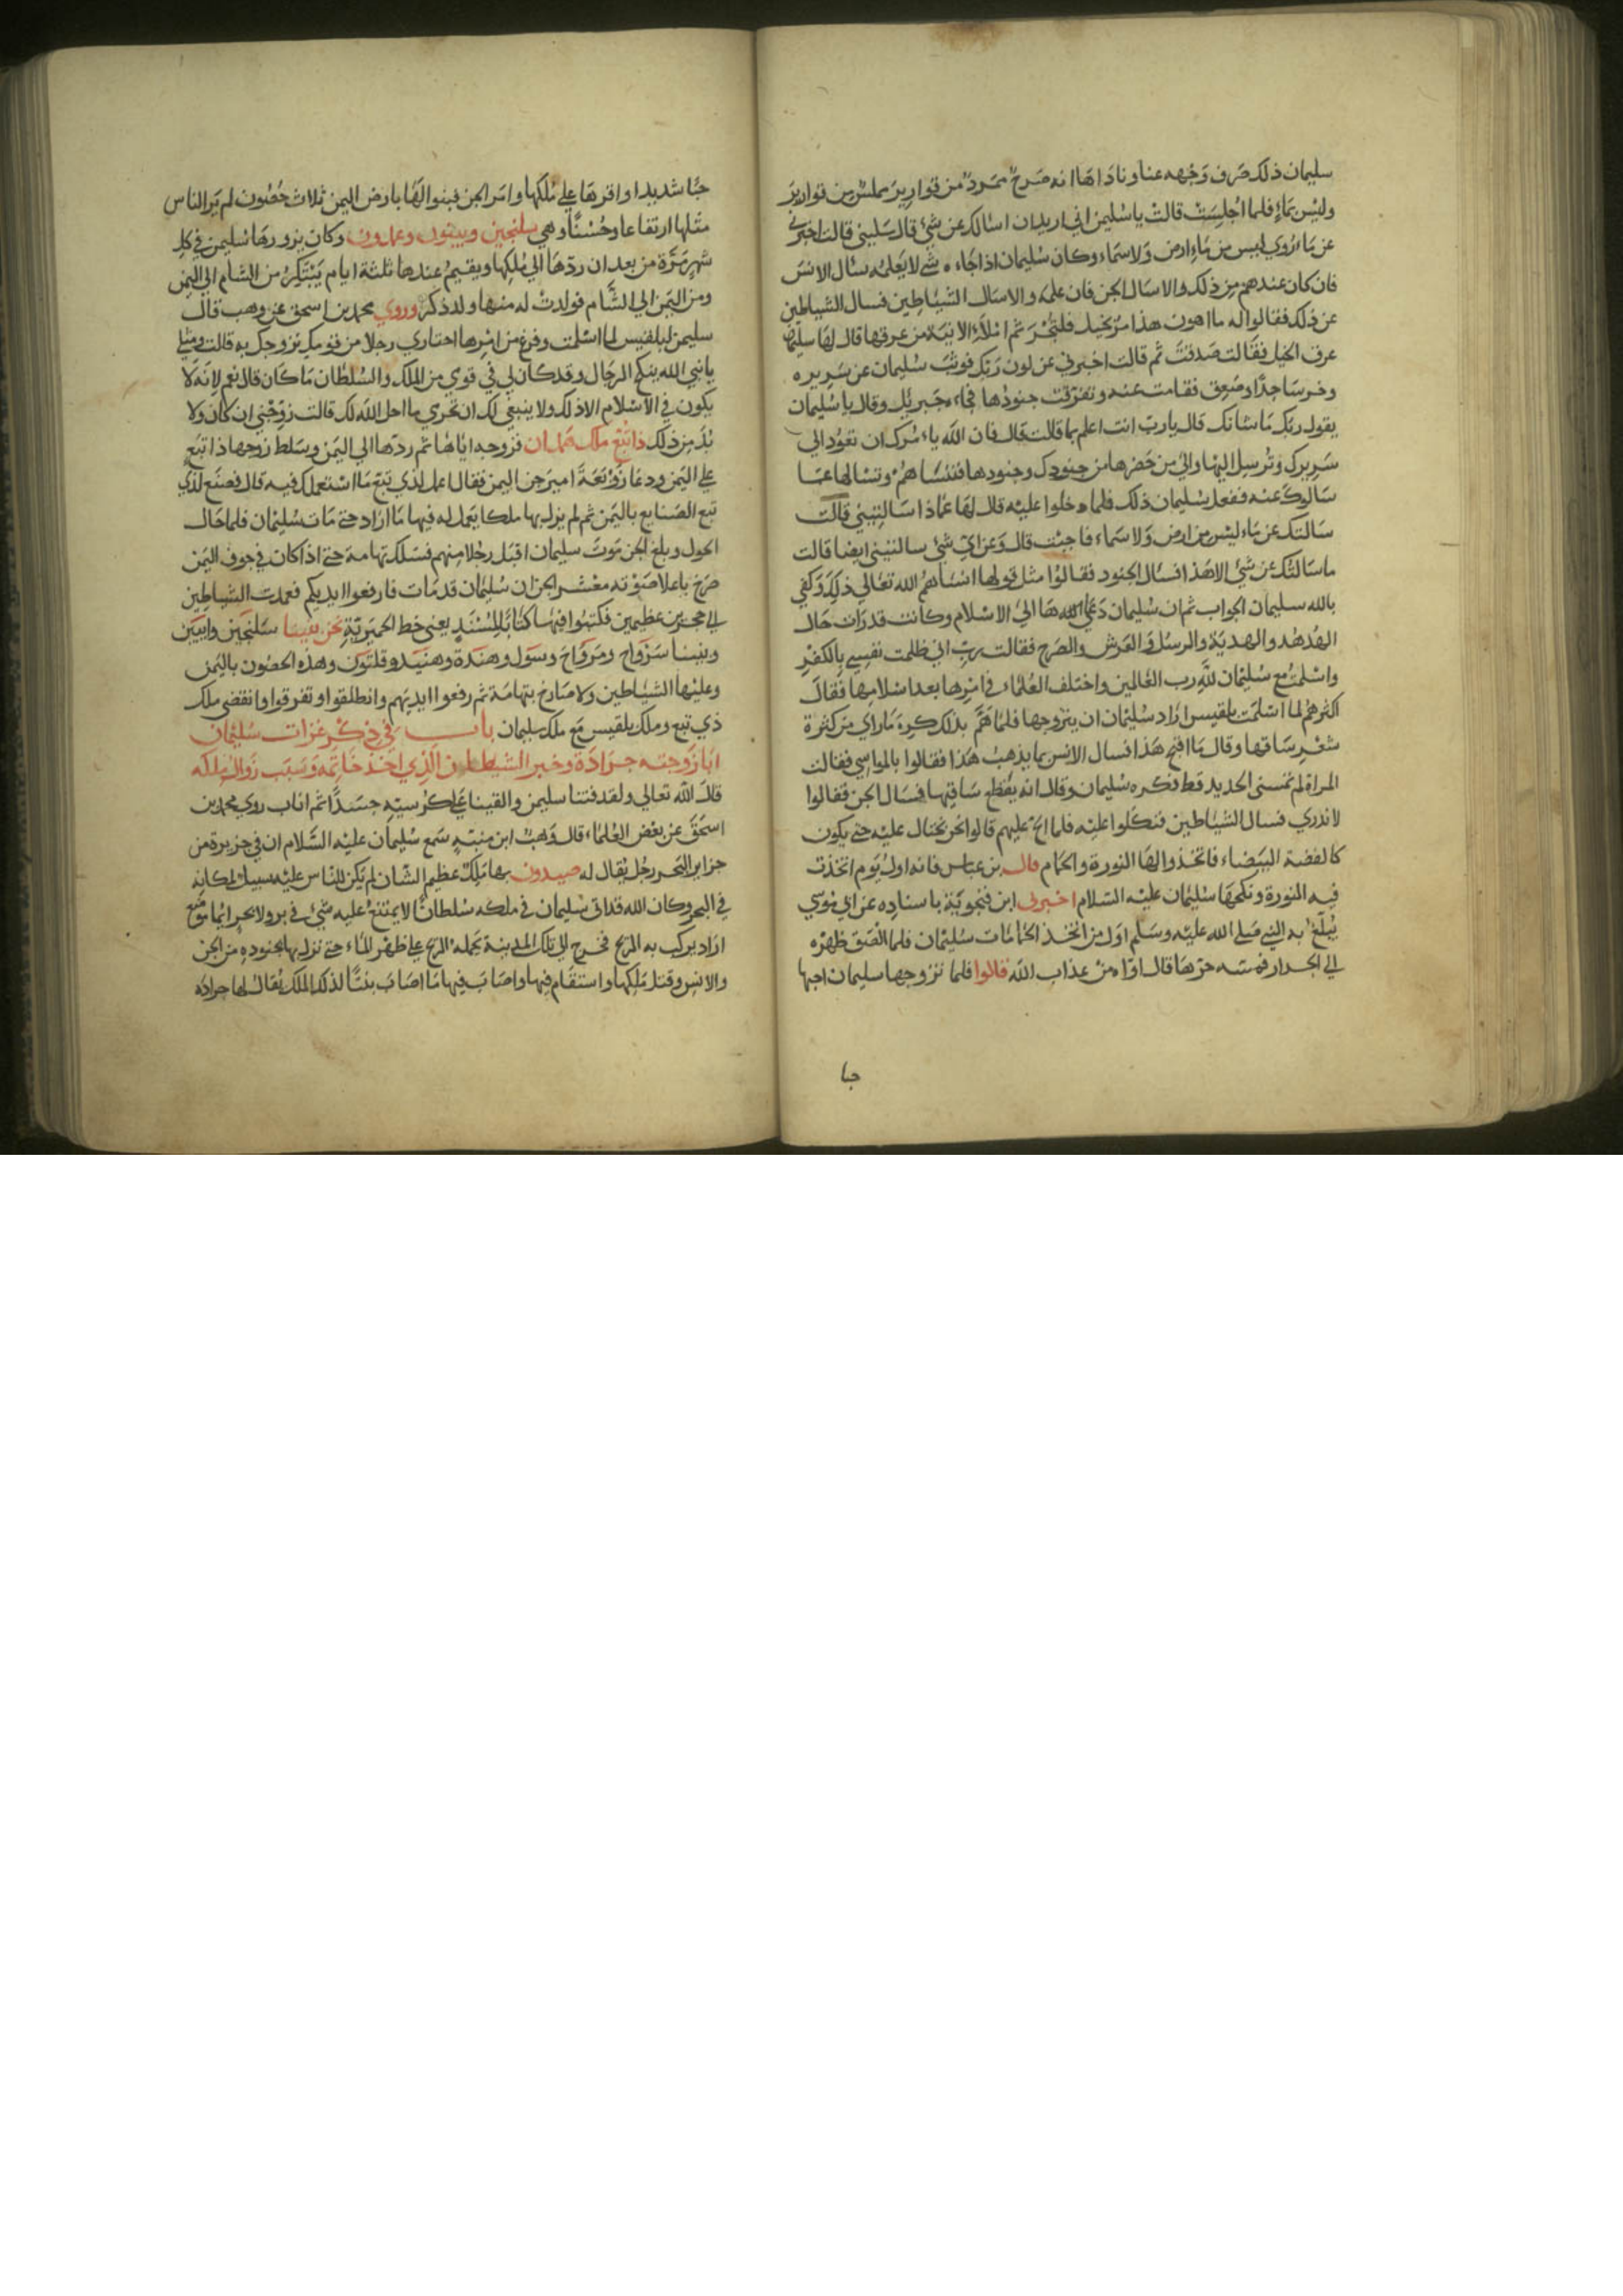 سليمان ذلك صرف وجهه عنها وناداها انه صرح ممرد من قوارير مملس من قوارير
وليس بماء فلما اجلست قالت يا سليمن اني اريد ان اسالك عن شئ قال سليني قالت اخبرني
عن ماء روي ليس من ماء ارض ولا سماء وكان سليمان اذا جاءه شئ لا يعلمه سال الانس
فان كان عندهم من ذلك والا سال الجن فان علموه والا سال الشياطين فسال الشياطين
عن ذلك فقالوا له ما اهون هذا مر بخيل فلتجر ثم املاء الانية من عرقها قال لها سليمان
عرق الخيل فقالت صدقت ثم قالت اخبرني عن لون ربك فوثب سليمان عن سريره
وخر ساجدا وصعق فقامت عنه وتفرقت جنودها فجاءه جبريل وقال يا سليمان
يقول ربك ما شانك قال يا رب انت اعلم بما قالت قال فان الله يامرك ان تعود الي
سريرك وترسل اليها والي من حضرها من جنودك وجنودها فتسالهم وتسالها عما
سالوك عنه ففعل سليمان ذلك فلما دخلوا عليه قال لها عماذا سالتيني قالت
سالتك عن ماء ليس من ارض ولا سماء فاجبت قال وعن اي شئ سالتيني ايضا قالت
ما سالتك عن شئ الا هذا فسال الجنود فقالوا مثل قولها انساهم الله تعالي ذلك وكفي
بالله سليمان الجواب ثم ان سليمان دعاها الي الاسلام وكانت قد رات حال
الهدهد والهدية والرسل والعرش والصرح فقالت رب اني ظلمت نفسي بالكفر
واسلمت مع سليمان لله رب العالمين واختلف العلماء في امرها بعد اسلامها فقال
اكثرهم لما اسلمت بلقيس اراد سليمان ان يتزوجها فلما هم بذلك كره ما راي من كثرة
شعر ساقها وقال ما اقبح هذا فسال الانس بما يذهب هذا فقالوا بالمواسي فقالت
المراة لم تمسني الحديد قط فكره سليمان وقال انه يقطع ساقيها فسال الجن فقالوا
لا ندري فسال الشياطين فنكلوا عليه فلما الح عليهم قالوا نحن نحتال عليه حتي يكون
كالفضة البيضاء فاتخذوا لها النورة والحمام قال بن عباس فانه اول يوم اتخذت
فيه النورة ونكحها سليمان عليه السلام اخبرني ابن فنجوية باسناده عن ابي موسي
يبلغ به النبي صلي الله عليه وسلم اول من اتخذ الحمامات سليمان فلما الصق ظهره
الي الجدار فمسه حرها قال اواه من عذاب الله قالوا فلما تزوجها سليمان احبها
حبا
حبا شديدا واقرها علي ملكها وامر الجن فبنوا لها بارض اليمن ثلاث حصون لم ير الناس
مثلها ارتفاعا وحسنا وهي سلنجين وبينون وعمدون وكان يزورها سليمن في كل
شهر مرة من بعد ان ردها الي ملكها ويقيم عندها ثلثة ايام يبتكر من الشام الي اليمن
ومن اليمن الي الشام فولدت له منها ولد ذكر وروي محمد بن اسحق عن وهب قال
سليمن لبلقيس لما اسلمت وفرغ من امرها اختاري رجلا من قومك نزوجك به قالت ومثلي
يا نبي الله ينكح الرجال وقد كان لي في قومي من الملك والسلطان ما كان قال نعم لانه لا
يكون في الاسلام الا ذلك ولا ينبغي لك ان تحرمي ما احل الله لك قالت زوجني ان كان ولا
بد من ذلك ذا تبع ملك همدان فزوجه اياها ثم ردها الي اليمن وسلط زوجها ذا تبع
علي اليمن ودعا زوبعة امير جن اليمن فقال اعمل لذي تبع ما استعملك فيه قال فصنع لذي
تبع الصنايع باليمن ثم لم يزل بها ملكا يعمل له فيها ما اراد حتي مات سليمان فلما حال
الحول وبلغ الجن موت سليمان اقبل رجلا منهم فسلك تهامة حتي اذا كان في جوف اليمن
صرخ باعلا صوته معشر الجن ان سليمان قد مات فارفعوا ايديكم فعمدت الشياطين
الي حجرين عظيمين فكتبوا فيها كتابا بالمسند يعني خط الحميرية نحن بنينا سلنجين وابيين
وبنينا سرواح ومرواح وسول وهندة وهنيده وقلتون وهذه الحصون باليمن
وعليها الشياطين ولا صارخ بتهامة ثم رفعوا ايديهم وانطلقوا وتفرقوا وانقضي ملك
ذي تبع وملك بلقيس مع ملك سليمان باب في ذكر غزات سليمان
ابا زوجته جرادة وخبر الشيطان الذي اخذ خاتمه وسبب زوال ملكه
قال الله تعالي ولقد فتنا سليمن والقينا علي كرسيه جسدا ثم اناب روي محمد بن
اسحق عن بعض العلماء قال وهب ابن منبه سمع سليمان عليه السلام ان في جزيرة من
جزاير البحر رجل يقال له صيدون بها ملك عظيم الشان لم يكن للناس عليه سبيل لمكانه
في البحر وكان الله قد اتي سليمان في ملكه سلطانا لا يمتنع عليه شئ في بر ولا بحر
اراد يركب به الريح فخرج الي تلك المدينة تحمله الريح علي ظهر الماء حتي نزل بها بجنوده من الجن
والانس وقتل ملكها واستقام فيها واصاب فيها ما اصاب بنتا لذلك الملك يقال لها جرادة